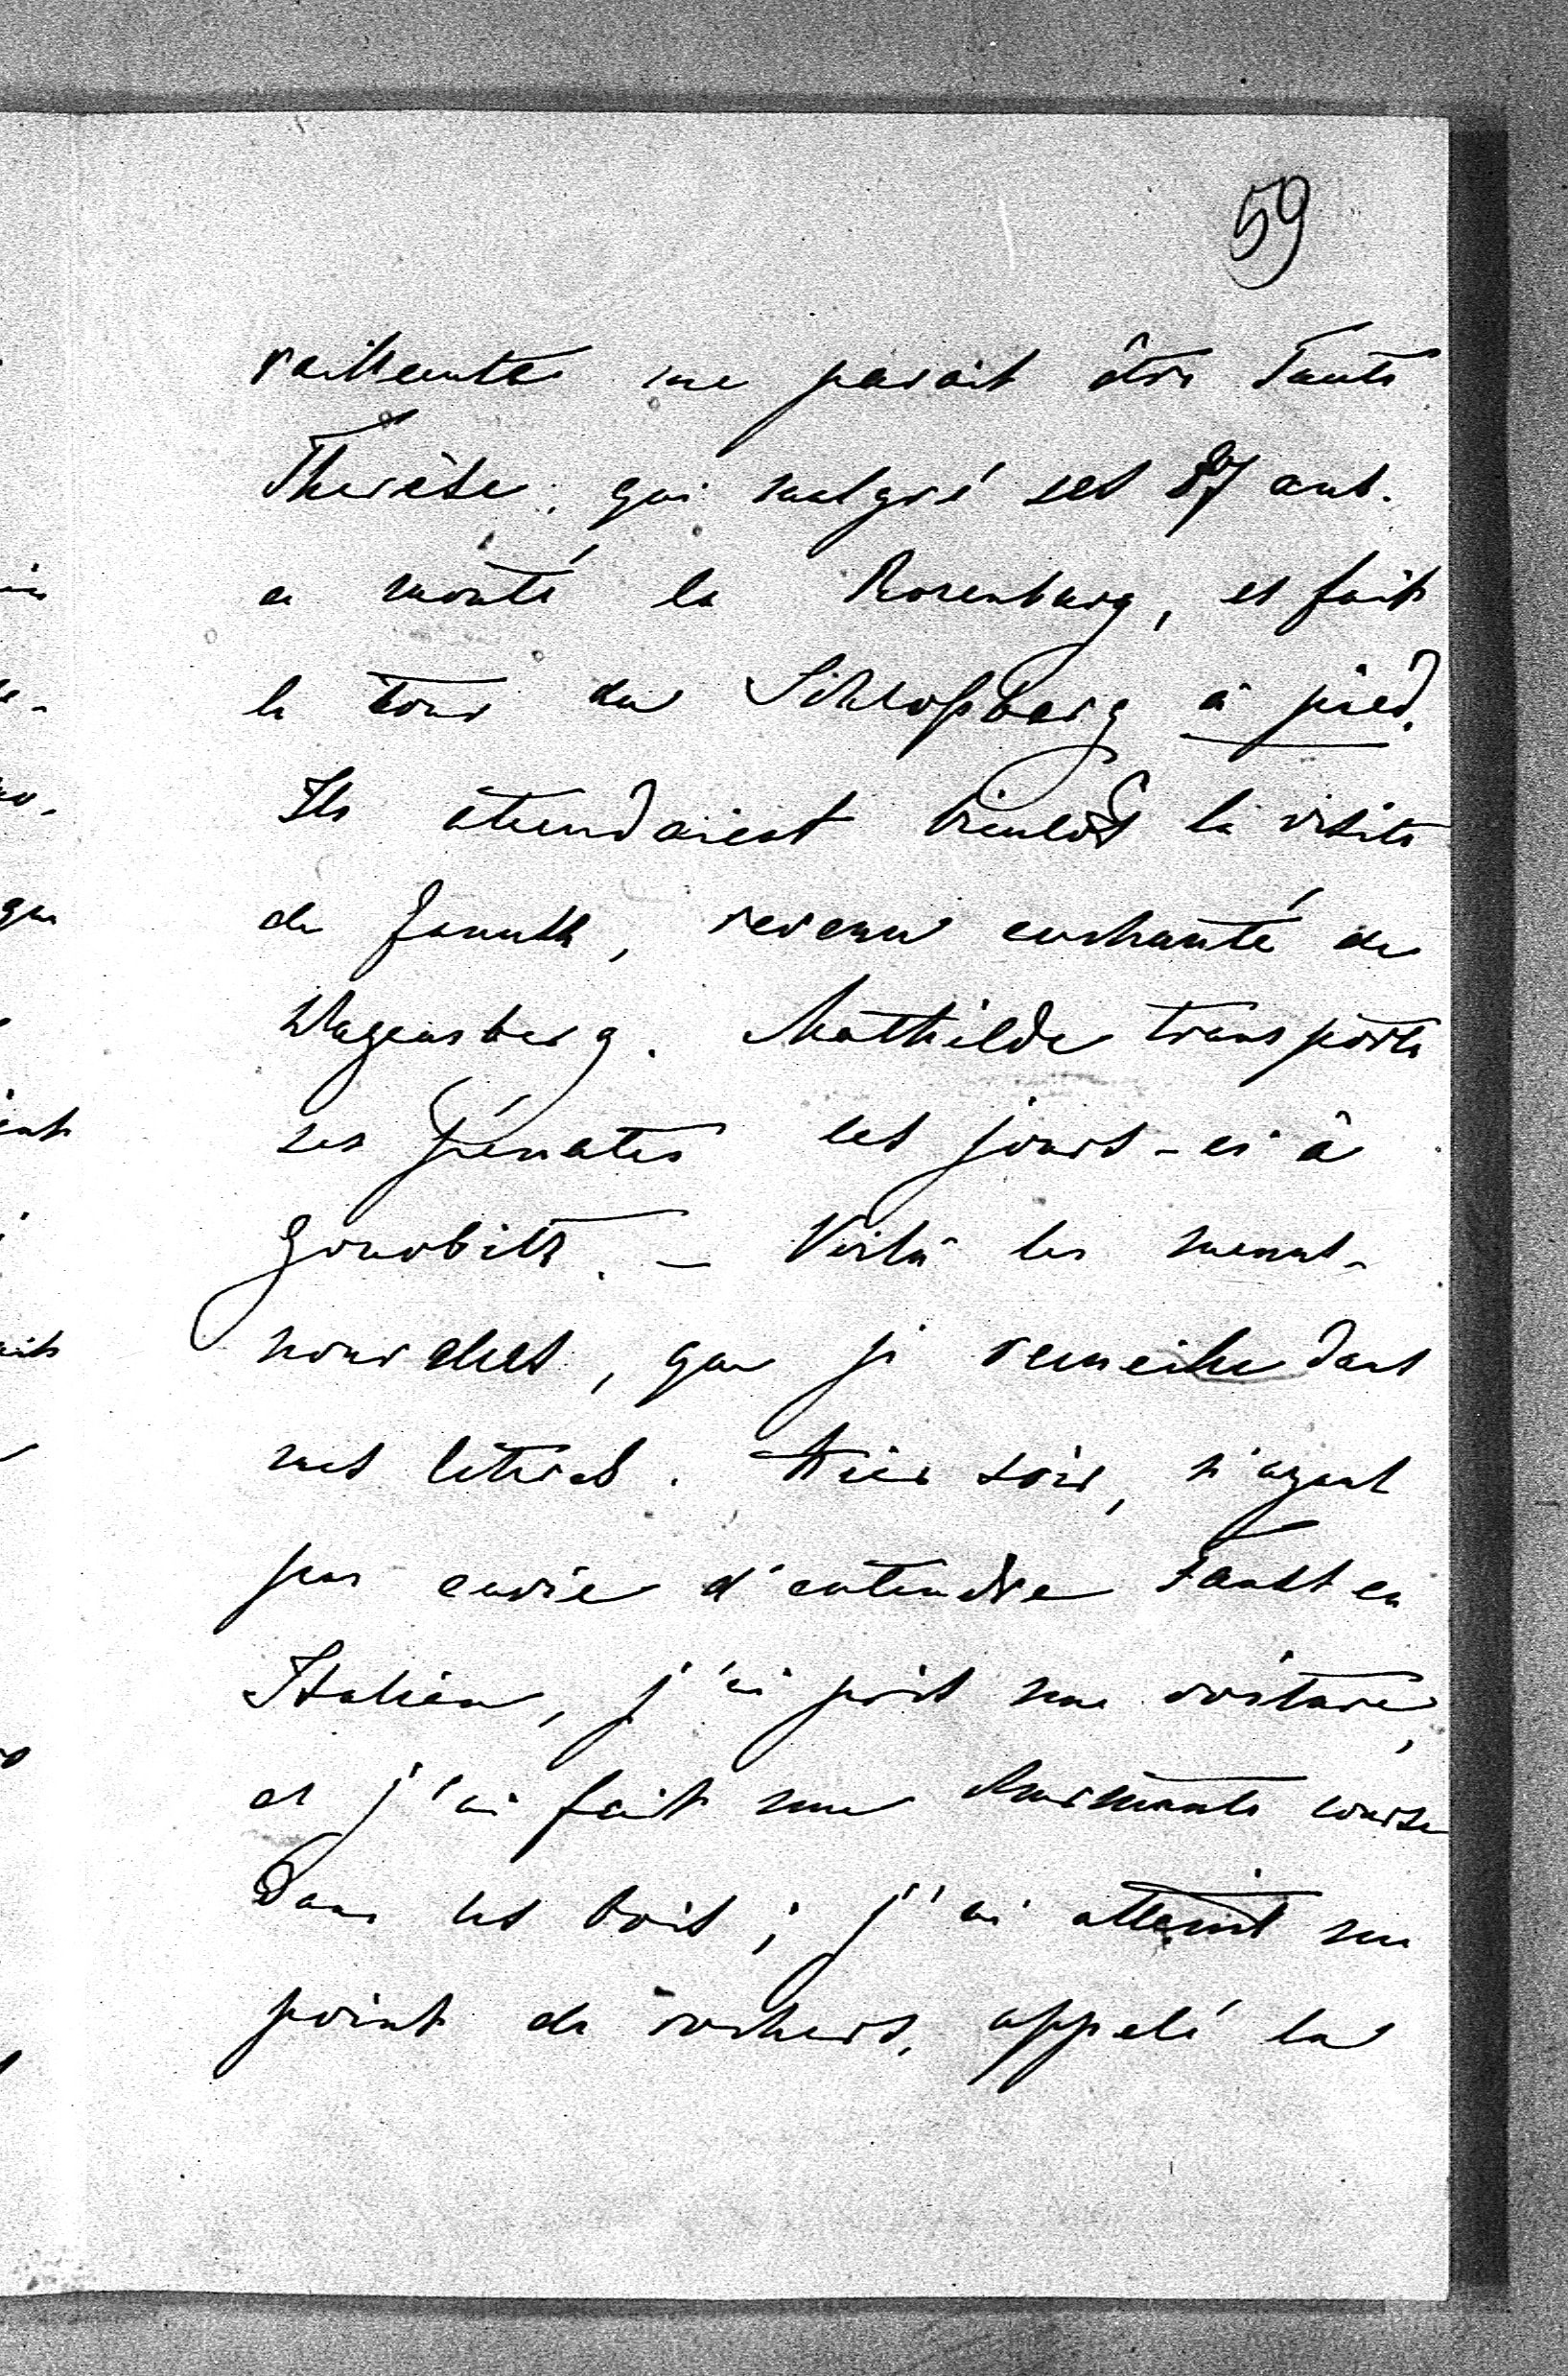 59
vaillante me parait être Tante
Therèse, qui malgré ses 87 ans.
a monté la Rosenburg, et fait
le tour du Schloßberg à pied.
Ils attendaient bientôt la visite
de , revenu enchanté de
Wagensberg. Mathilde transporte
ses pénates ces jours-ci à
Gonobitz. – Voilà les menus-
nouvelles, que je recueille dans
mes lettres. Hier soir, n'ayant
pas envie d'entendre Faust en
Italien, j'ai pris une voiture,
et j'ai fait une charmante course
dans les bois; j'ai atteint un
point de rochers, appelé la